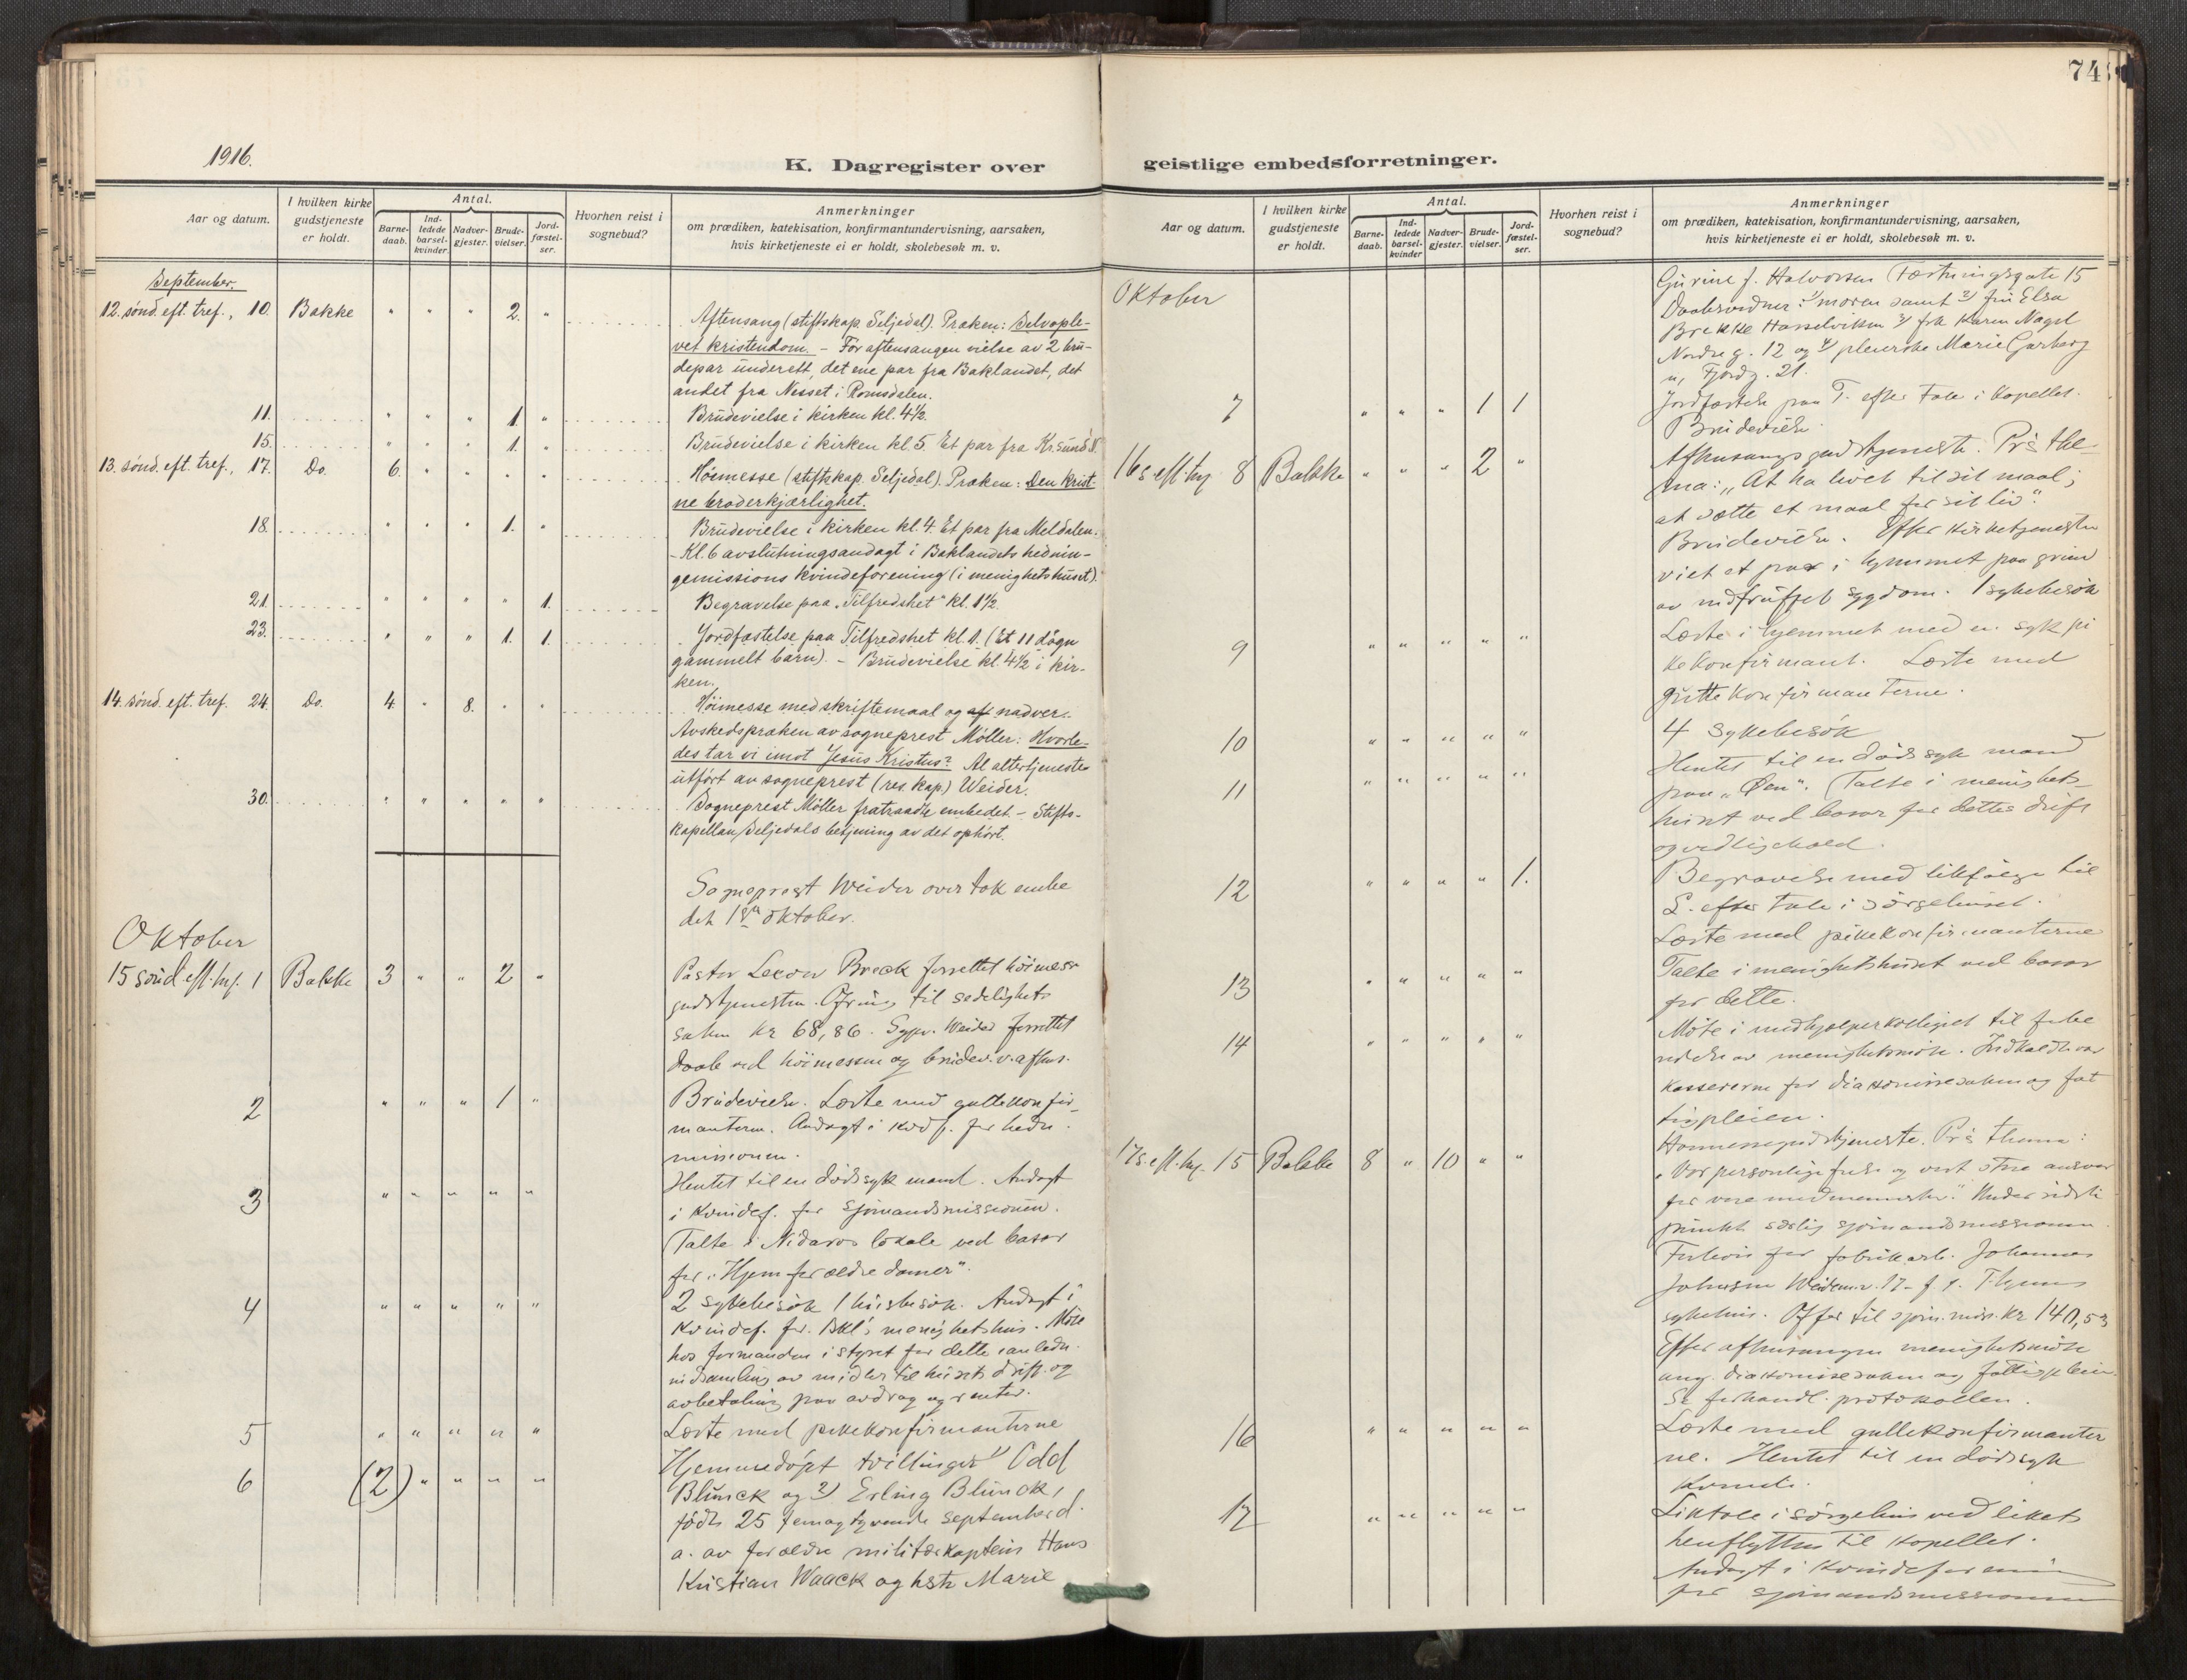 74
1916.
K. Dagregister over geistlige embedsforretninger.
Aar og datum.
I hvilken kirke gudstjeneste er holdt.
Antal.
Barnedaab.
Indledede barselkvinder.
Nadvergjester.
Brudevielser.
Jordfæstelser.
Hvorhen reist i sognebud?
Anmerkninger
om prædiken, katekisation, konfirmantundervisning, aarsaken,
hvis kirketjeneste ei er holdt, skolebesøk m. v.
September.
12. sönd. eft. tref., 10. Bakke " " " 2. "
Aftensang (stiftskap. Seljedal). Præken: Selvople-
vet kristendom. – Før aftensangen vielse av 2 bru-
depar underett, det ene par fra Baklandet, det
andet fra Nesset i Romsdalen.
11. " " " 1. " Brudevielse i kirken kl. 4½.
15. " " " 1. " Brudevielse i kirken kl. 5. Et par fra Kr.sund N.
13. sönd. eft. tref., 17. Do. 6. " " " " Høimesse (stiftskap. Seljedal). Præken: Den krist-
ne broderkjærlighet.
18. " " " 1. " Brudevielse i kirken kl. 4. Et par fra Meldalen.
- Kl. 6 avslutningsandagt i Baklandets hednin-
gemissions kvindeforening (i menighetshuset).
21. " " " " 1. Begravelse paa „Tilfredshet" kl. 1½.
23. " " " 1. 1. Jordfæstelse paa Tilfredshet kl. 1. (Et 11 døgn
gammelt barn). – Brudevielse kl. 4½ i kir-
ken.
14. sönd. eft. tref. 24. Do. 4. " 8. " " Høimesse med skriftemaal og af nadver.
Avskedspræken av sogneprest Möller: Hvorle-
des tar vi imot Jesus Kristus? Al altertjeneste
utført av sogneprest (res. kap.) Weider.
30. " " " " " Sogneprest Möller fratraadte embedet. – Stifts-
kapellan Seljedals betjening av det ophørt.
Sogneprest Weider overtok embe
det 1ste oktober.
Oktober
15 sönd. eft. tref. 1 Bakke 3 " " 2 " Pastor Brock forrettet høimesse
gudstjenesten. Ofring til sedeligheds
saken kr 68,86. Sgpr. Weider forrettet
daab ved høimessen og brudev. v. aftens.
2 " " " 1 " Brudevielse. Læste med guttekonfir
manterne. Andagt i kvdf. for hedn.
missionen.
3 " " " " " Hentet til en dødssyk mand. Andagt
i kvindef. for sjømandsmissionen.
Talte i Nidaros lokale ved basar
for „Hjem for ældre damer".
4 " " " " " 2 sykebesøk 1 husbesøk. Andagt i
kvindef. for Bkl's menighetshus. Møte
hos formanden i styret for dette i anledn.
indsamling av midler til husets drift og
avbetaling paa avdrag og renter.
5 " " " " " Læste med pikekonfirmanterne
6 (2) " " " " Hjemmedøpt tvillinger 1) Odd
Blunck og 2) Erling Blunck,
født 25 femogtyvende september d.
a. av forældre militærkaptein Hans
Kristian Waack og hstr Marie
Aar og datum.
I hvilken kirke gudstjeneste er holdt.
Antal.
Barnedaab.
Indledede barselkvinder
Nadvergjester.
Brudevielser.
Jordfæstelser.
Hvorhen reist i sognebud?
Anmerkninger
om prædiken, katekisation, konfirmantundervisning, aarsaken,
hvis kirketjeneste ei er holdt, skolebesøk m. v.
Oktober
f. Halvorsen Fæstningsgate 15
Daabsvidner: 1) moren samt 2) fru Elsa
Brekke Hasselviken 3) frk Karen Nagel
Nordre g. 12 og 4) pleierske Marie Garberg
Fjordg. 21.
7 " " " 1 1 Jordfæstelse paa T. efter tale i kapellet.
Brudevielse.
16 s. eft. tref. 8 Bakke " " " 2 " Aftensangsgudstjeneste. Pr's the
ma: „At ha livet til sit maal;
at sætte et maal for sit liv".
Brudevielse. Efter kirketjenesten
viet et par i hjemmet paa grund
av indtruffet sygdom. 1 sykebesøk
9 " " " " " Læste i hjemmet med en syk pi
kekonfirmant. Læste med
guttekonfirmanterne.
10 " " " " " 4 sykebesøk
11 " " " " " Hentet til en dødssyk mand
paa „Øen". Talte i menighets
huset ved basar for dettes drift
og vedligehold.
12 " " " " 1. Begravelse med likfølge til
L. efter tale i sørgehuset.
Læste med pikekonfirmanterne
13 " " " " " Talte i menighetshuset ved basar
for dette.
14 " " " " " Møte i medhjælperkollegiet til forbe
redelse av menighetsmøte. Indkaldt var
kassererne for diakonissesaken og fat
tigpleien.
17 s. eft. tref. 15 Bakke 8 " 10 " " Høimessegudstjeneste. Pr's thema:
„Vor personlige frelse og vort store ansvar
for vore medmennesker." Under sidste
punkt særlig sjømandsmissionen.
Forbøn for fabrikarb. Johannes
Johnsen Weidem.v. 17
sykehus. Offer til sjøm. miss. kr 140,53
Efter aftensangen menighetsmøte
ang. diakonissesaken og fattigpleien.
Se forhandl. protokollen.
16 " " " " " Læste med guttekonfirmanter
ne. Hentet til en dødssyk
kvinde.
17 " " " " " Liktale i sørgehus ved likets
henflytten til kapellet.
Andagt i kvindeforening
for sjømandsmissionen